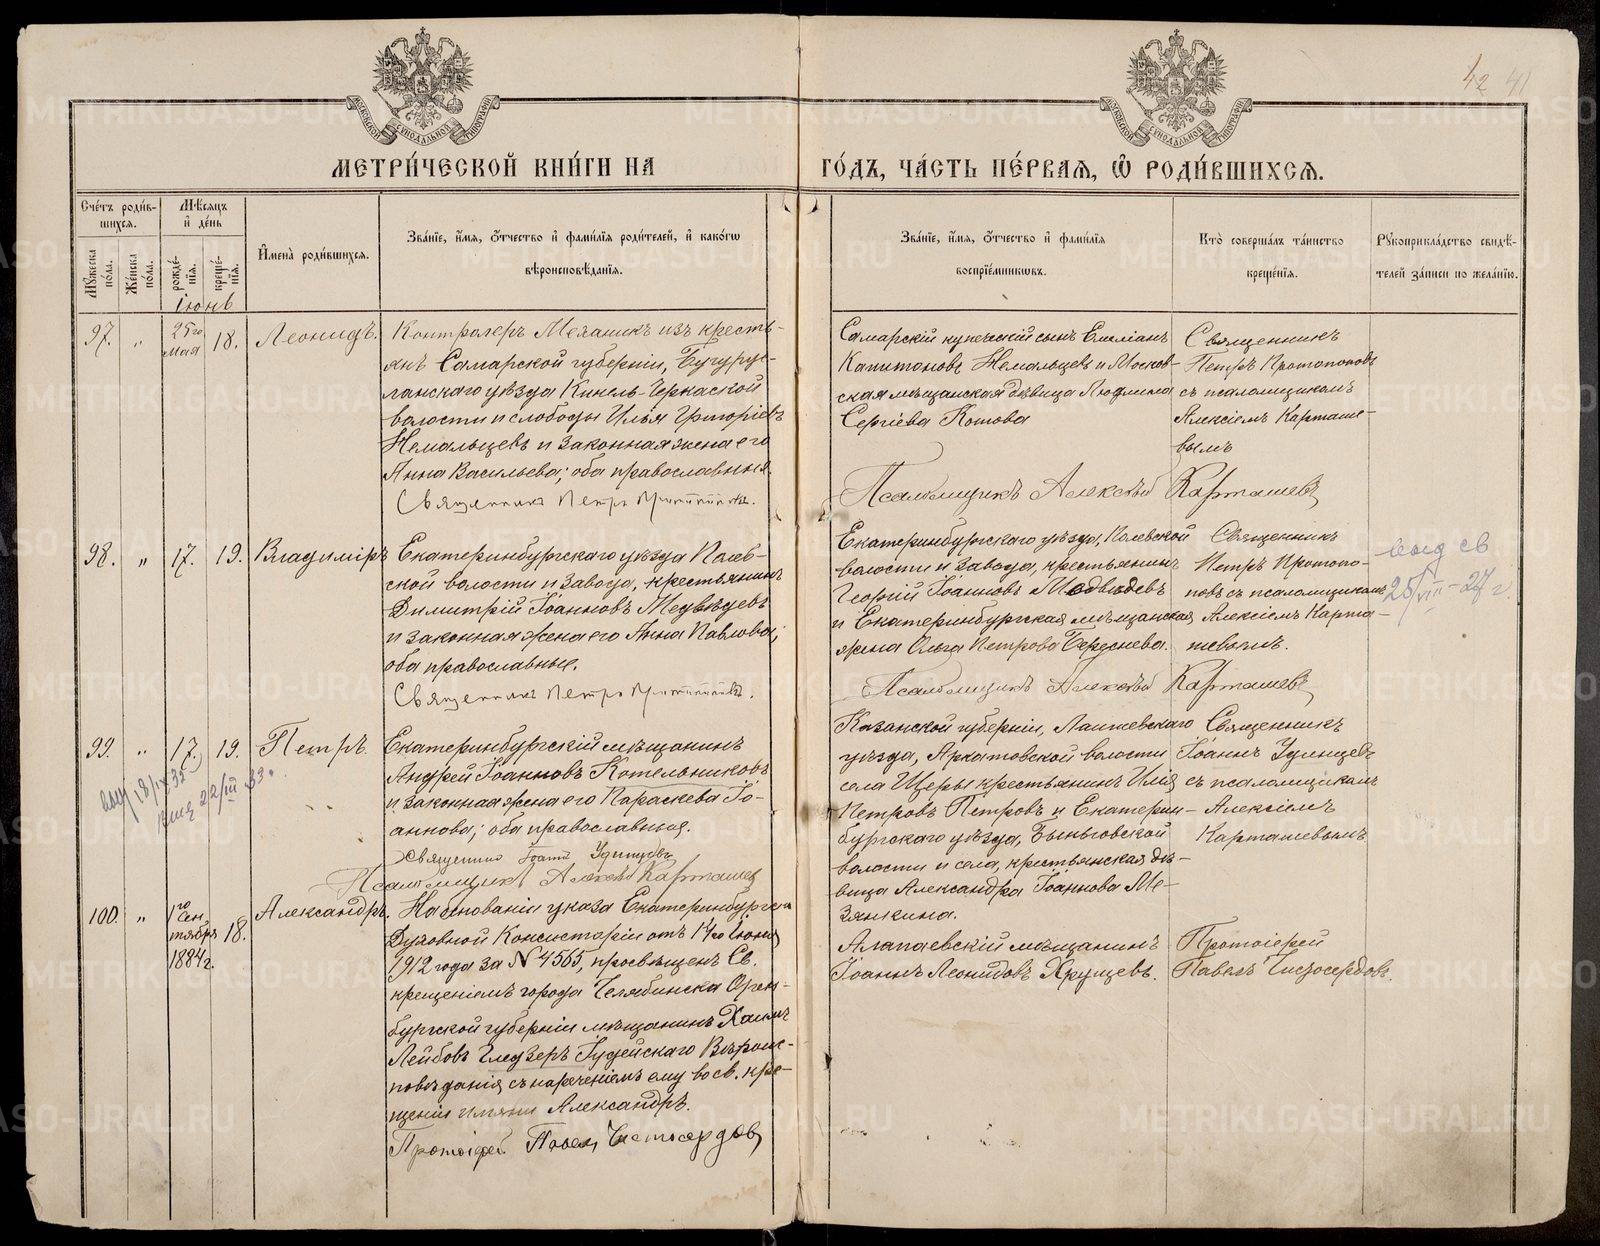 42 41
МЕТРИ́ЧЕСКОЙ КНИ́ГИ НА ГО́ДЪ, ЧА́СТЬ ПЕ́РВАЯ, Ѡ҆ РОДИ́ВШИХСѦ.
Сче́тъ роди́вшихся.
Мѣсяцъ и҆ де́нь
Мꙋ́жеска по́ла.
Же́нска по́ла.
рожде́нїѧ.
креще́нїѧ.
И҆мена̀ роди́вшихся.
Зва́нїе, и҆́мѧ, ѻ҆́тчество и҆ фами́лїѧ роди́телей, и҆ како́гѡ
вѣроисповѣ́данїѧ.
Зва́нїе, и҆́мѧ, ѻ҆́тчество и҆ фами́лїѧ
воспрїе́мникѡвъ.
Кто̀ соверша́лъ та́инство
креще́нїѧ.
Рꙋкоприкла́дство свидѣ́-
телей за́писи по жела́нїю.
Іюнь
97. „ 25го Мая 18. Леонидъ.
Контролеръ Механикъ изъ кресть-
янъ Самарской губерніи, Бугурус-
ланскаго уѣзда Кинель-Черкаской
волости и слободы Илья Григоріевъ
Немальцевъ и законная жена его
Анна Васильева; оба православныя.
Священникъ Петръ Протопоповъ.
Самарскій купеческій сынъ Емиліанъ
Капитоновъ Немальцев и Москов-
ская мѣщанская дѣвица Людмила
Сергіева Котова
Священникъ
Петръ Протопоповъ
съ псаломщикомъ
Алексіемъ Карташе-
вымъ
Псаломщикъ Алексѣй Карташевъ
98. „ 17. 19. Владиміръ
Екатеринбургскаго уѣзда Полев-
ской волости и завода, крестьянинъ
Димитрій Іоанновъ Медвѣдевъ
и законная жена его Анна Павлова;
оба православные.
Священникъ Петръ Протопоповъ.
Екатеринбургскаго уѣзда, Полевской
волости и завода, крестьянинъ
Георгій Іоанновъ Медвѣдевъ
и Екатеринбургская мѣщанская
жена Ольга Петрова Береснева.
Священникъ
Петръ Протопо-
повъ съ псаломщикомъ
Алексіемъ Карта-
шевымъ.
св
25/VII-27 г.
Псаломщикъ Алексѣй Карташевъ
99. „ 17. 19. Петръ.
22/III 33.
Екатеринбургскій мѣщанинъ
Андрей Іоанновъ Котельниковъ
и законная жена его Параскева Іо-
аннова; оба православныя.
Священник Іоаннъ Удинцевъ
Псаломщикъ Алексѣй Карташевъ
Казанской губерніи, Лаишевскаго
уѣзда, Архатовской волости
села Щербы крестьянинъ Илія
Петровъ Петровъ и Екатерин-
бургскаго уѣзда, Быньговской
волости и села, крестьянская дѣ-
вица Александра Іоаннова Ме-
зянкина.
Священникъ
Іоаннъ Удинцевъ
съ псаломщикомъ
Алексіемъ
Карташевымъ
100. „ 1го Сен тября 1884г. 18. Александръ.
На основаніи указа Екатеринбургской
Духовной Консисторіи отъ 14го Іюня
1912 года за № 4565, просвѣщенъ Св.
крещеніемъ города Челябинска Орен-
бургской губерніи мѣщанинъ Хаимъ
Лейбовъ Гледзеръ Іудейскаго Вѣроис-
повѣданія, съ нареченіемъ ему во св. кре-
щеніи имяни Александръ.
Протоіерей Павелъ Чистосердовъ
Алапаевскій мѣщанинъ
Іоаннъ Леонидовъ Хрущевъ.
Протоіерей
Павелъ Чистосердовъ.
METRIKI.GASO-URAL.RU